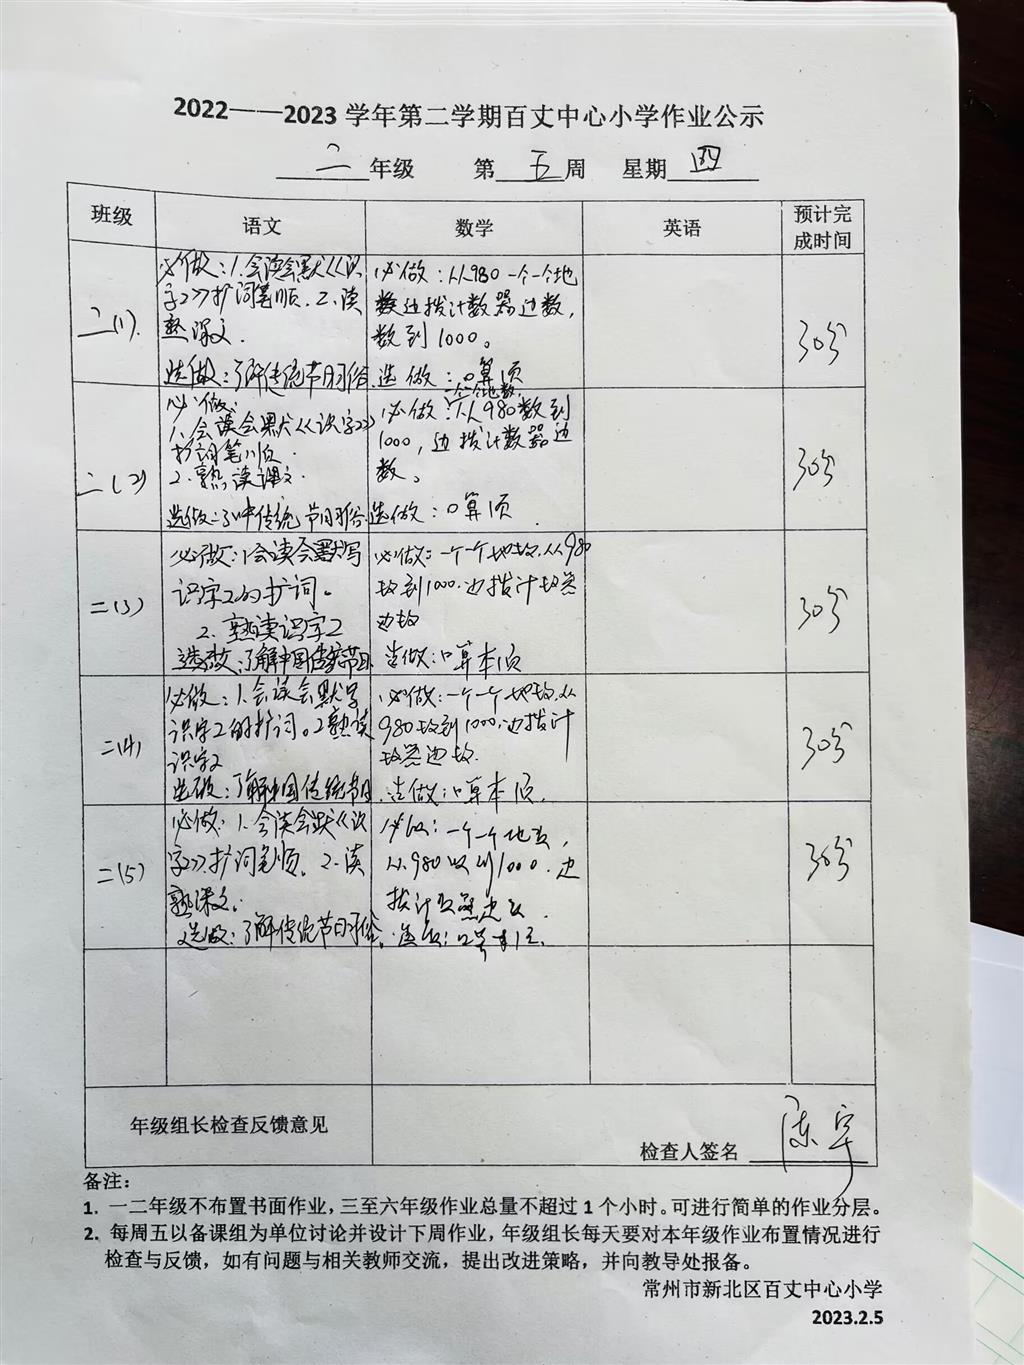 2022——2023 学年第二学期百丈中心小学作业公示
二 年级 第 五 周 星期 四
班级 语文 数学 英语 预计完
成时间
二(1).
必做:1.会读会默《识
字2》扩词笔顺.2.读
熟课文.
选做:了解传统节日习俗.
必做:从980一个一个地
数边拨计数器边数,
数到1000。
选做:口算1页
30分
二(2)
必做:
1.会读会默《识字2》
扩词笔顺.
2.熟读课文.
选做:了解传统节日习俗.
一个一个地数,
必做:从980数到
1000,边拨计数器边
数。
选做:口算1页.
30分
二(3)
必做:1会读会默写
识字2的扩词。
2.熟读识字2
选做:了解中国传统节日.
必做:一个一个地数.从980
数到1000.边拨计数器
边数
选做:口算本1页
30分
二(4)
必做:1.会读会默写
识字2的扩词。2熟读
识字2
选做:了解中国传统节日.
必做:一个一个地数.从
980数到1000.边拨计
数器边数.
选做:口算本1页.
30分
二(5)
必做:1.会读会默《识
字2》扩词笔顺.2.读
熟课文.
选做:了解传统节日习俗.
必做:一个一个地数,
从980数到1000.边
拨计数器边数.
选做:口算本1页.
30分
年级组长检查反馈意见
检查人签名 陈宇
备注:
1. 一二年级不布置书面作业,三至六年级作业总量不超过 1 个小时。可进行简单的作业分层。
2. 每周五以备课组为单位讨论并设计下周作业,年级组长每天要对本年级作业布置情况进行
检查与反馈,如有问题与相关教师交流,提出改进策略,并向教导处报备。
常州市新北区百丈中心小学
2023.2.5